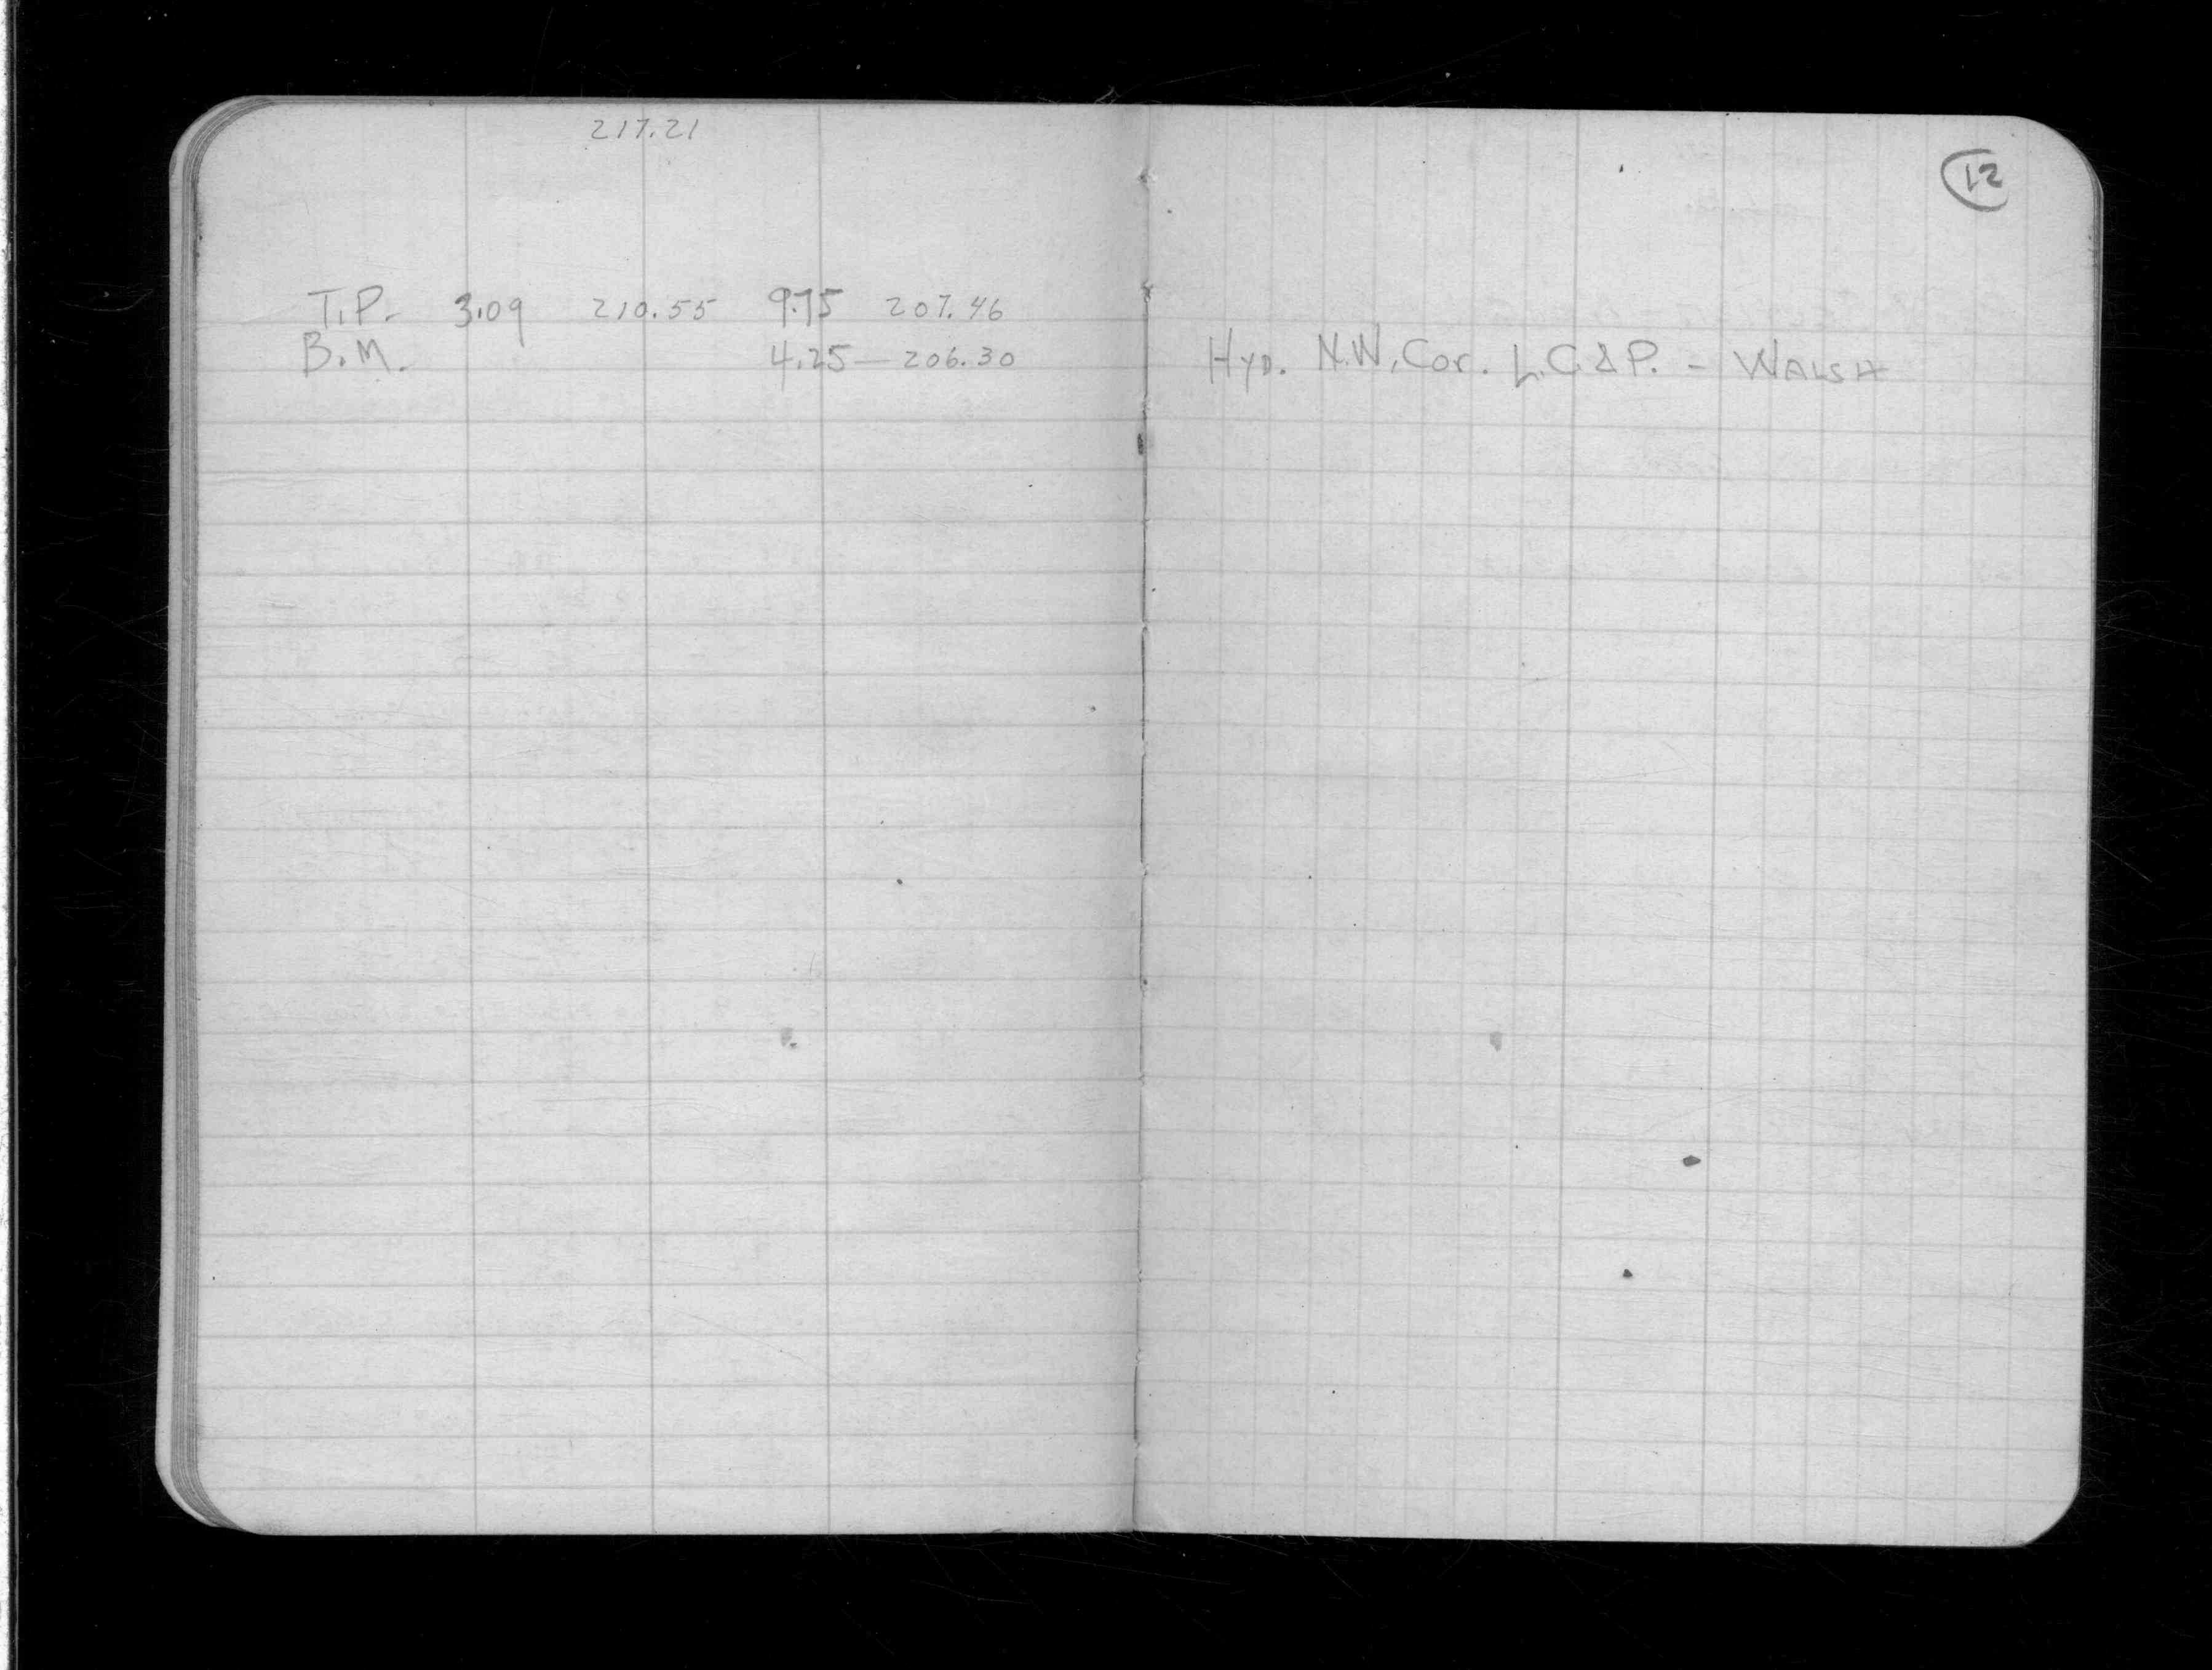 217.21
T.P. 3.09 210.55 9.75 207.46
B.M. 4.25 — 206.30
12
Hyd. N.W. Cor. L.C. & P. - WALSH